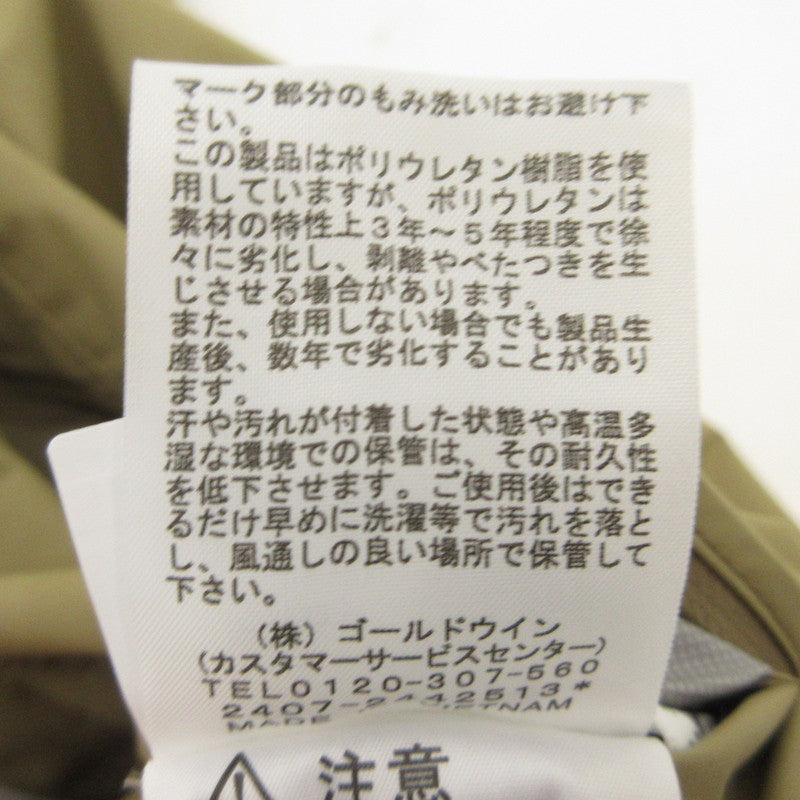 マーク部分のもみ洗いはお避け下
さい。
この製品はポリウレタン樹脂を使
用していますが、ポリウレタンは
素材の特性上３年～５年程度で徐
々に劣化し、剥離やべたつきを生
じさせる場合があります。
また、使用しない場合でも製品生
産後、数年で劣化することがあり
ます。
汗や汚れが付着した状態や高温多
湿な環境での保管は、その耐久性
を低下させます。ご使用後はでき
るだけ早めに洗濯等で汚れを落と
し、風通しの良い場所で保管して
下さい。
（株）ゴールドウイン
（カスタマーサービスセンター）
TEL0120-307-560
2407-2442513*
MADE VIETNAM
注意